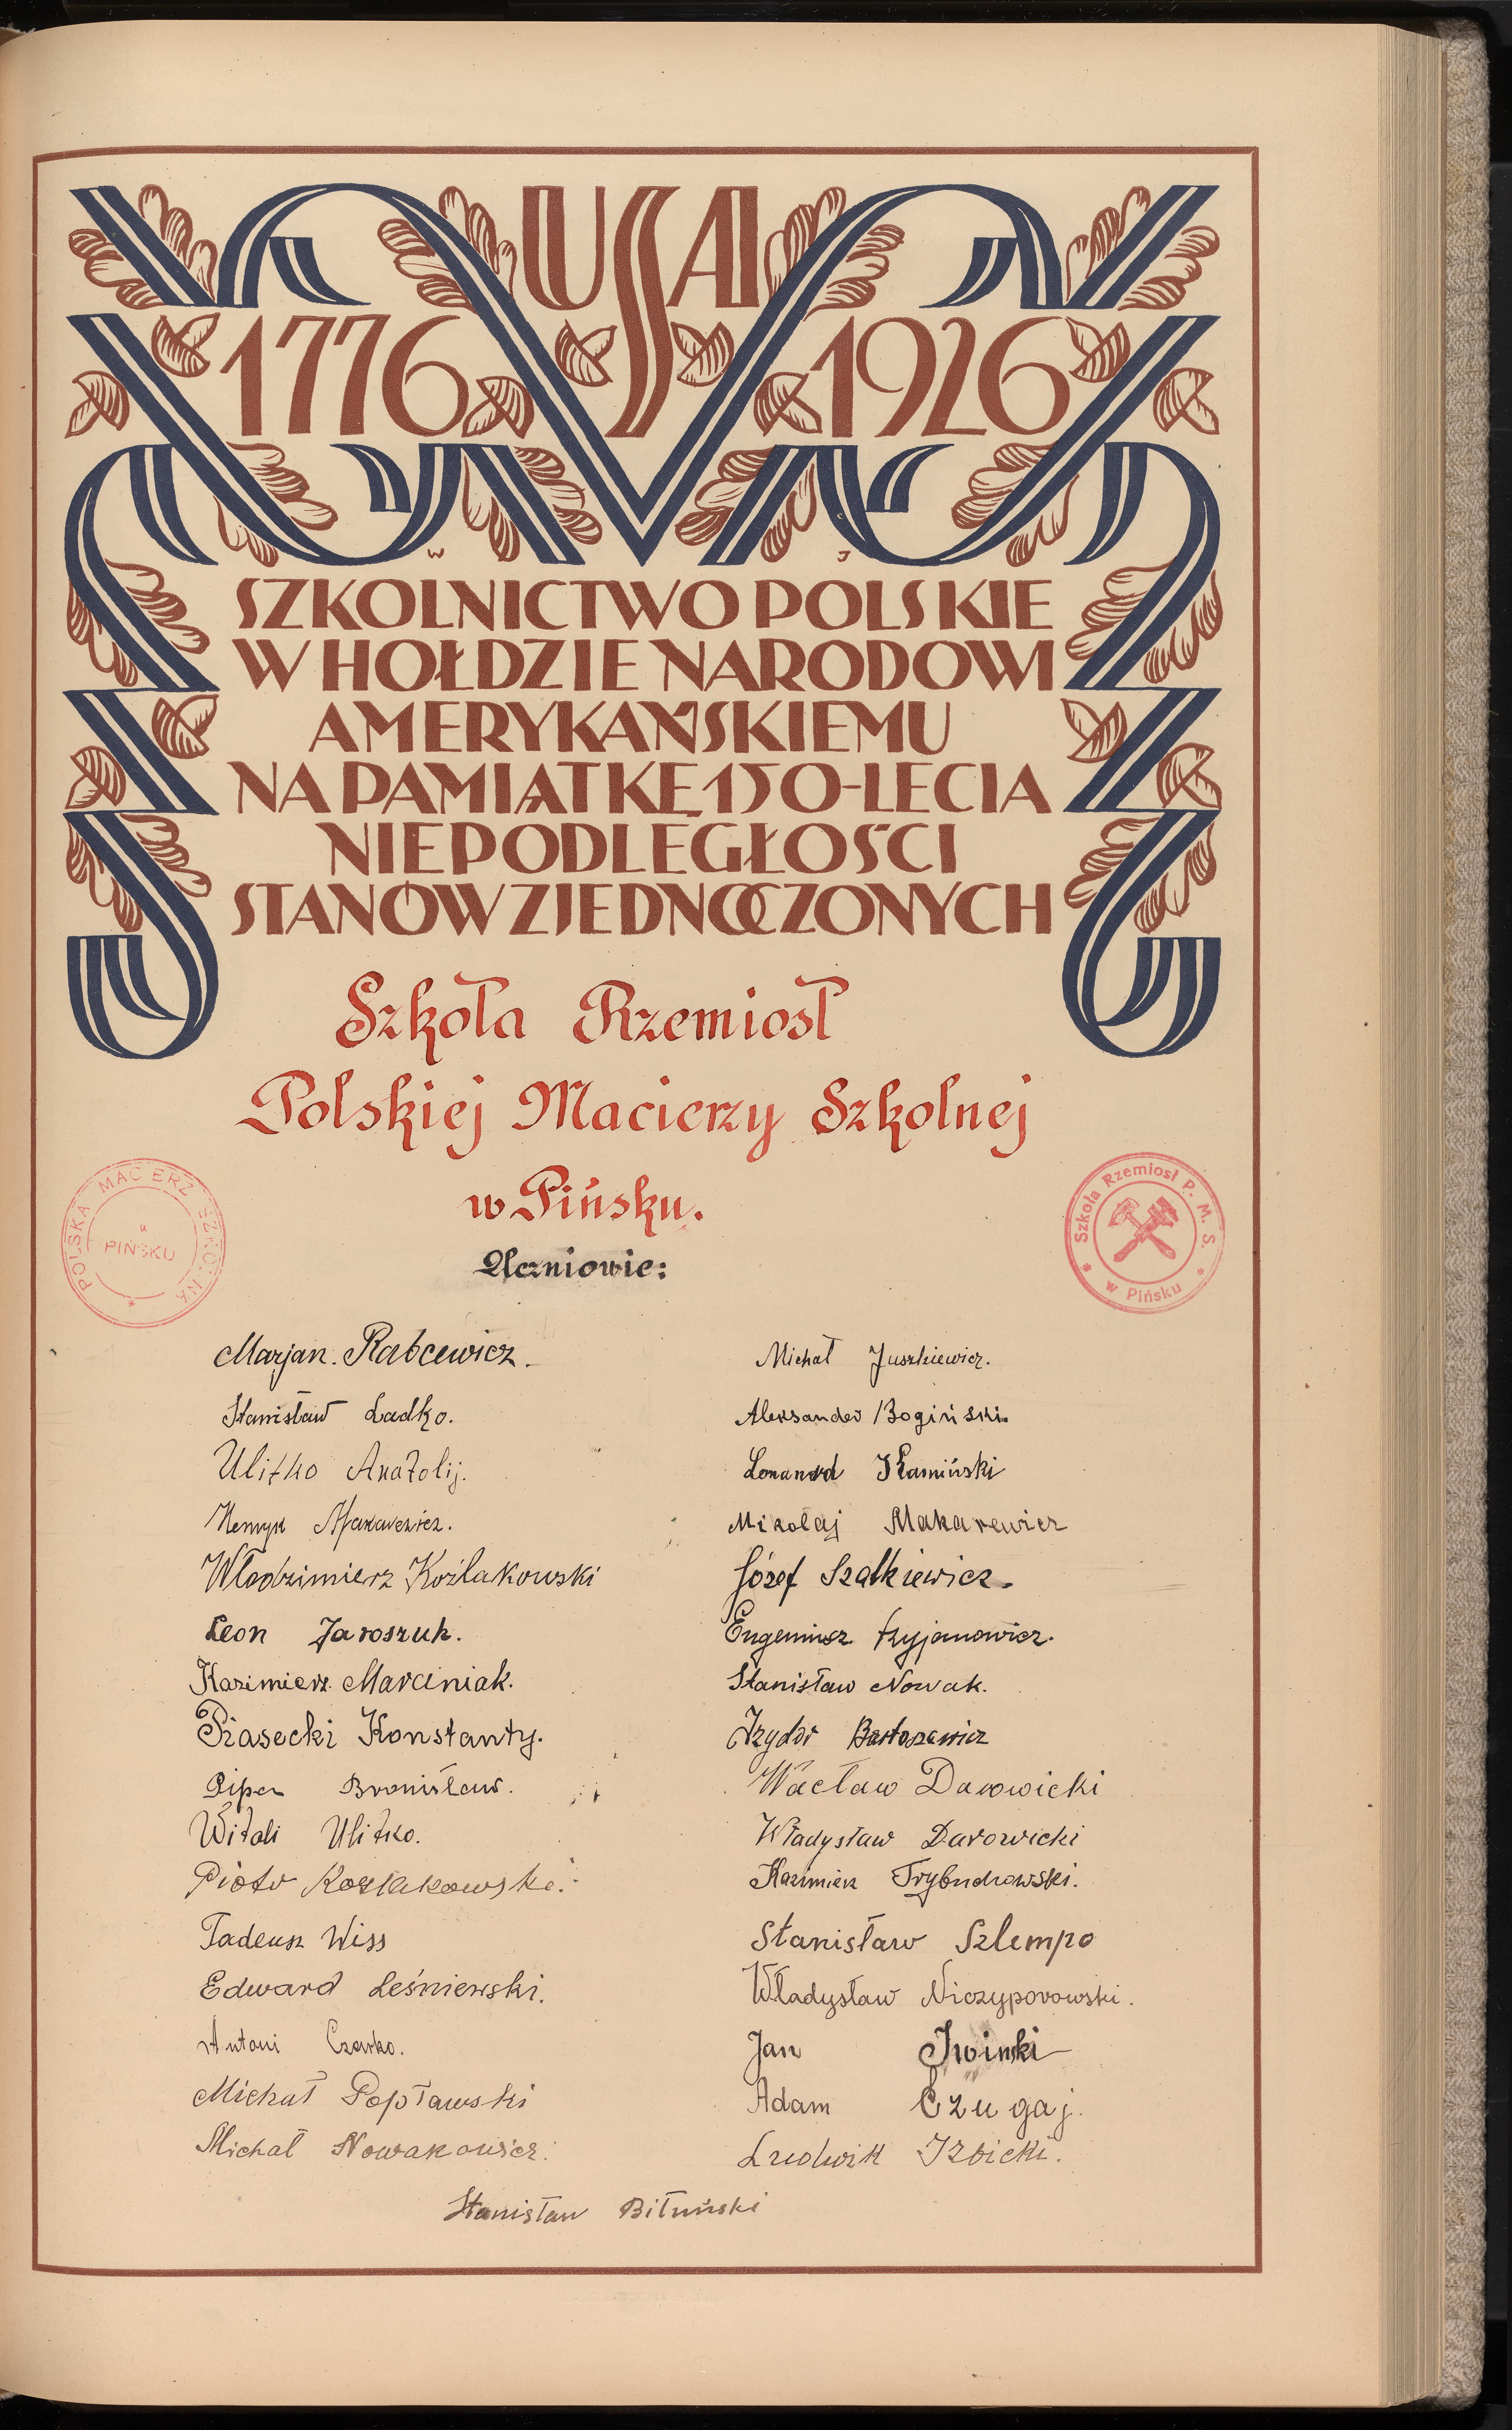 USA
1776 1926
W J
SZKOLNICTWO POLSKIE
W HOŁDZIE NARODOWI
AMERYKAŃSKIEMU
NA PAMIĄTKĘ 150-LECIA
NIEPODLEGŁOŚCI
STANÓW ZJEDNOCZONYCH
Szkoła Rzemiosł
Polskiej Macierzy Szkolnej
w Pińsku.
POLSKA MACIERZ SZKOLNA
w
PIŃSKU
Szkoła Rzemiosł P. M. S.
w Pińsku
Uczniowie:
Marjan. Rabcewicz.
Stanisław Ladko.
Ulitko Anatolij.
Henryk Makarewicz.
Włodzimierz Koźlakowski
Leon Jaroszuk.
Kazimierz Marciniak.
Piasecki Konstanty.
Piper Bronisław.
Witali Ulitko.
Piotr Kozlakowski.
Tadeusz Wiss
Edward Leśniewski.
Antoni Czarko.
Michał Popławski
Michał Nowakowicz.
Michał Juszkiewicz.
Aleksander Bogiński.
Kamiński
Mikołaj Makarewicz
Józef Szatkiewicz.
Eugeniusz
Stanisław Nowak.
Izydor Bartoszewicz
Wacław Darowicki
Władysław Darowicki
Kazimierz
Stanisław Szlempo
Władysław Niczyporowski.
Jan Iwiński
Adam Czugaj.
Ludwik Izbicki.
Stanisław Bituński